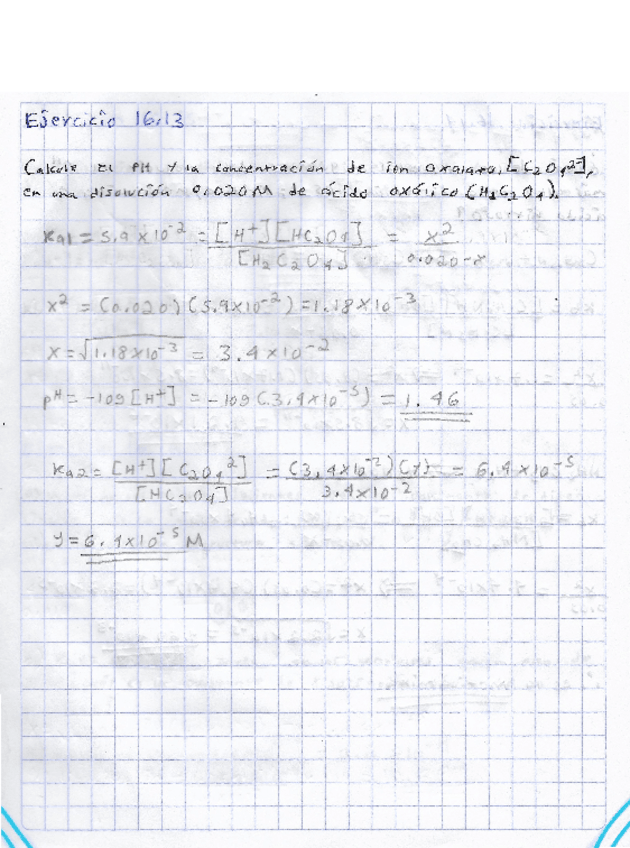 Ejercicio 16.13
Calcule el pH y la concentración de ion oxalato, [C₂O₄²⁻],
en una disolución 0.020 M de ácido oxálico (H₂C₂O₄).
Ka1 = 5.9 x 10⁻² = [H⁺][HC₂O₄] / [H₂C₂O₄] = x² / 0.020-x
x² = (0.020)(5.9x10⁻²) = 1.18 x 10⁻³
x = √1.18x10⁻³ = 3.4 x 10⁻²
pH = -log [H⁺] = -log (3.4x10⁻⁵) = 1.46
Ka2 = [H⁺][C₂O₄²] / [HC₂O₄] = (3.4x10⁻²)(y) / 3.4x10⁻² = 6.4 x 10⁻⁵
y = 6.4x10⁻⁵ M